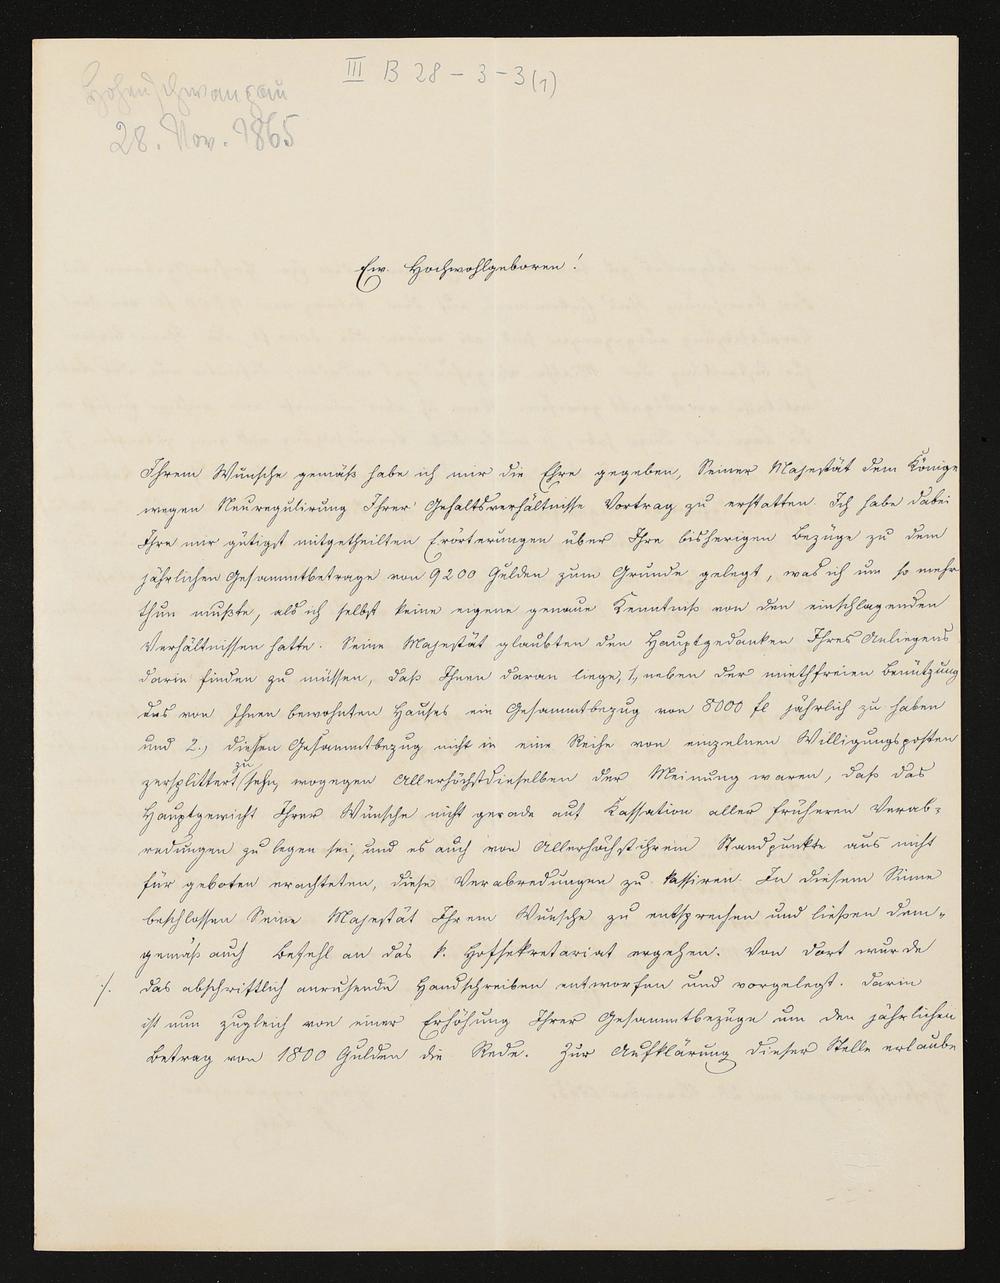 III B 28 - 3 - 3 (1)
Hohenschwangau
28. Nov. 1865
Ew. Hochwohlgeboren!
Ihrem Wunsche gemäß habe ich mir die Ehre gegeben, Seiner Majestät dem Könige
wegen Neuregulirung Ihrer Gehaltsverhältnisse Vortrag zu erstatten. Ich habe dabei
Ihre mir gütigst mitgetheilten Erörterungen über Ihre bisherigen Bezüge zu dem
jährlichen Gesammtbetrage von 9200 Gulden zum Grunde gelegt, was ich um so mehr
thun mußte, als ich selbst keine eigene genaue Kenntniß von den einschlagenden
Verhältnissen hatte. Seine Majestät glaubten den Hauptgedanken Ihres Anliegens
darin finden zu müssen, daß Ihnen daran liege, 1, neben der miethfreien Benützung
des von Ihnen bewohnten Hauses ein Gesammtbezug von 8000 fl jährlich zu haben
und 2.) diesen Gesammtbezug nicht in eine Reihe von einzelnen Willigungsposten
zersplittert zu sehn, wogegen Allerhöchstdieselben der Meinung waren, daß das
Hauptgewicht Ihrer Wünsche nicht gerade auf Kassation aller früheren Verab-
redungen zu legen sei, und es auch von Allerhöchstihrem Standpunkte aus nicht
für geboten erachteten, diese Verabredungen zu kassiren. In diesem Sinne
beschlossen Seine Majestät Ihrem Wunsche zu entsprechen und ließen dem-
gemäß auch Befehl an das k. Hofsekretariat ergehen. Von dort wurde
./. das abschriftlich anruhende Handschreiben entworfen und vorgelegt. Darin
ist nun zugleich von einer Erhöhung Ihrer Gesammtbezüge um den jährlichen
Betrag von 1800 Gulden die Rede. Zur Aufklärung dieser Stelle erlaube